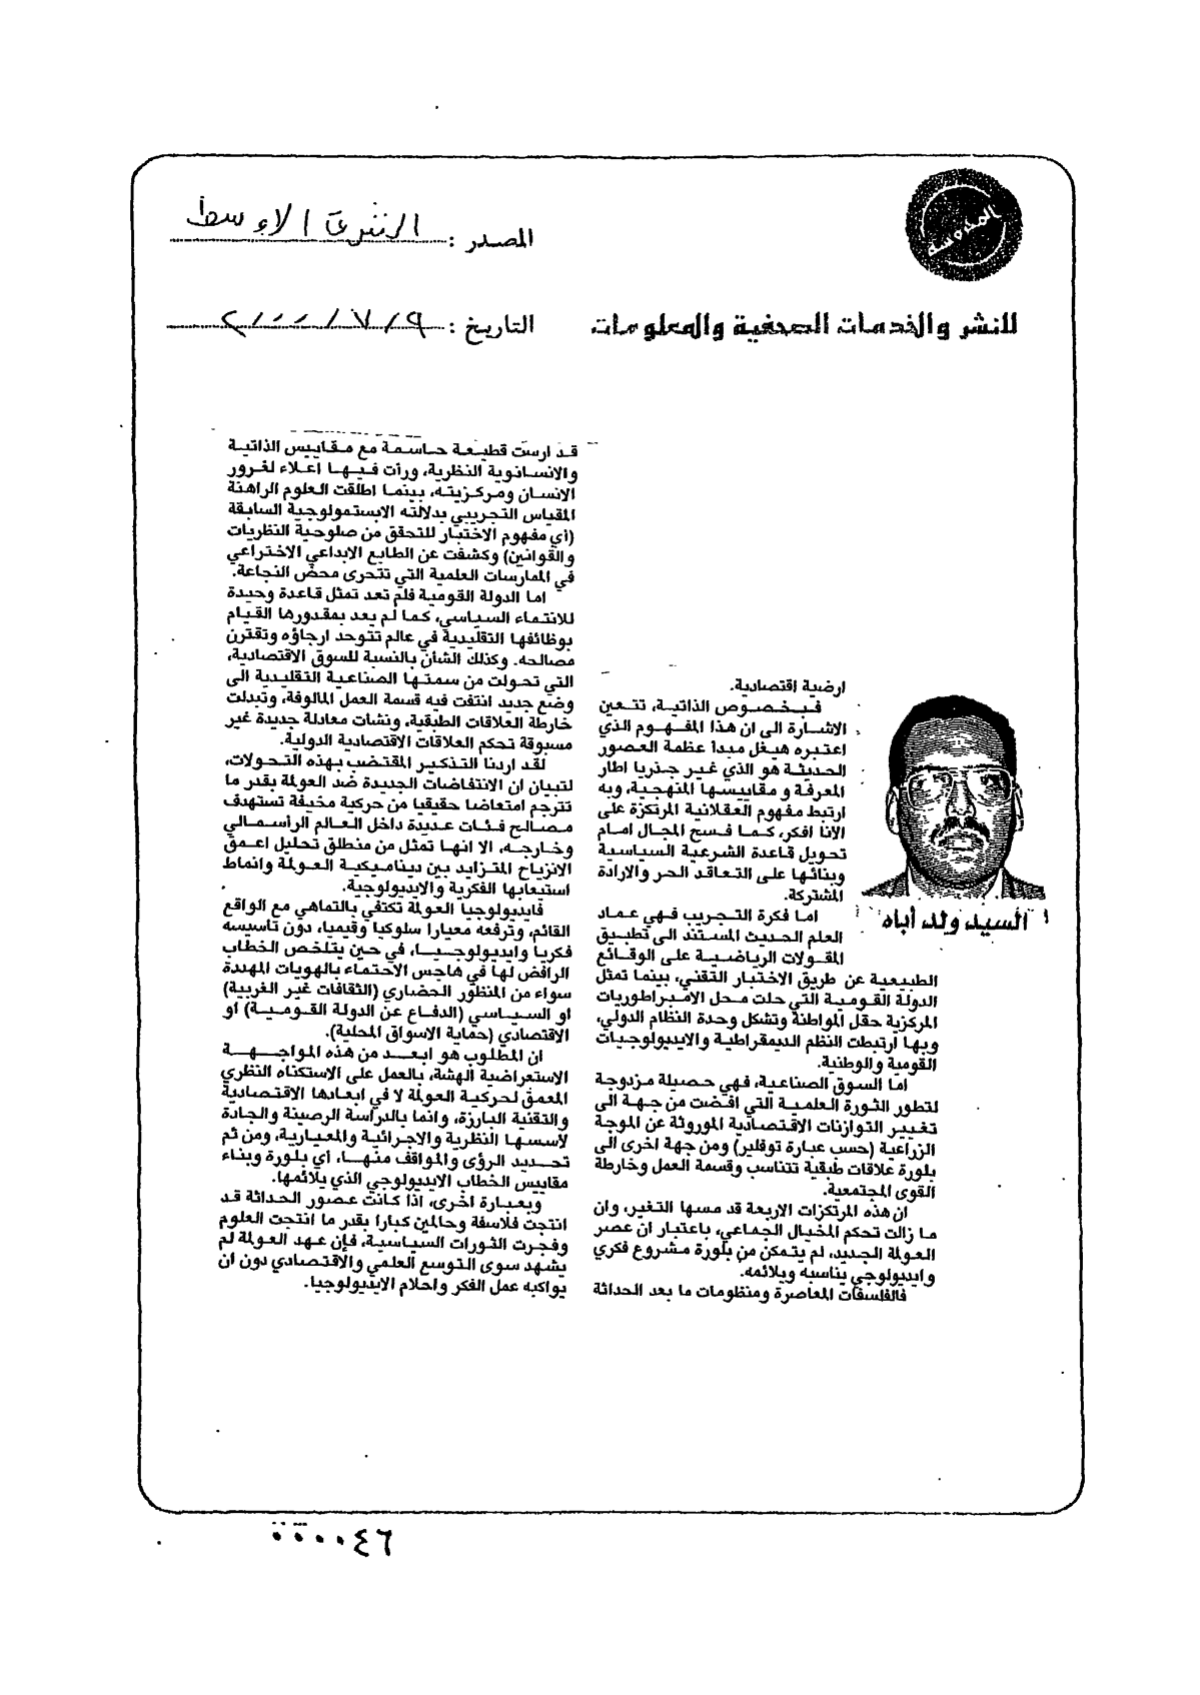 المصدر : الشرق الاوسط
للنشر والخدمات الصحفية والمعلومات
التاريخ : ٩/٧/٢٠٠٠
السيد ولد أباه
ارضية اقتصادية.
فبخصوص الذاتية، تتعين
الاشارة الى ان هذا المفهوم الذي
اعتبره هيغل مبدأ عظمة العصور
الحديثة هو الذي غير جذريا اطار
المعرفة و مقاييسها المنهجية، وبه
ارتبط مفهوم العقلانية المرتكزة على
الأنا افكر، كما فسح المجال امام
تحويل قاعدة الشرعية السياسية
وبنائها على التعاقد الحر والارادة
المشتركة.
اما فكرة التجريب فهي عماد
العلم الحديث المستند الى تطبيق
المقولات الرياضية على الوقائع
الطبيعية عن طريق الاختبار التقني، بينما تمثل
الدولة القومية التي حلت محل الامبراطوريات
المركزية حقل المواطنة وتشكل وحدة النظام الدولي،
وبها ارتبطت النظم الديمقراطية والايديولوجيات
القومية والوطنية.
اما السوق الصناعية، فهي حصيلة مزدوجة
لتطور الثورة العلمية التي افضت من جهة الى
تغيير التوازنات الاقتصادية الموروثة عن الموجة
الزراعية (حسب عبارة توفلير) ومن جهة اخرى الى
بلورة علاقات طبقية تتناسب وقسمة العمل وخارطة
القوى المجتمعية.
ان هذه المرتكزات الاربعة قد مسها التغير، وان
ما زالت تحكم المخيال الجماعي، باعتبار ان عصر
العولمة الجديد، لم يتمكن من بلورة مشروع فكري
وايديولوجي يناسبه ويلائمه.
فالفلسفات المعاصرة ومنظومات ما بعد الحداثة
قد ارست قطيعة حاسمة مع مقاييس الذاتية
والانسانوية النظرية، ورأت فيها اعلاء لغرور
الانسان ومركزيته، بينما اطلقت العلوم الراهنة
المقياس التجريبي بدلالته الابستمولوجية السابقة
(أي مفهوم الاختبار للتحقق من صلوحية النظريات
والقوانين) وكشفت عن الطابع الابداعي الاختراعي
في الممارسات العلمية التي تتحرى محض النجاعة.
اما الدولة القومية فلم تعد تمثل قاعدة وحيدة
للانتماء السياسي، كما لم يعد بمقدورها القيام
بوظائفها التقليدية في عالم تتوحد ارجاؤه وتقترن
مصالحه. وكذلك الشأن بالنسبة للسوق الاقتصادية،
التي تحولت من سمتها الصناعية التقليدية الى
وضع جديد انتفت فيه قسمة العمل المالوفة، وتبدلت
خارطة العلاقات الطبقية، ونشات معادلة جديدة غير
مسبوقة تحكم العلاقات الاقتصادية الدولية.
لقد اردنا التذكير المقتضب بهذه التحولات،
لتبيان ان الانتفاضات الجديدة ضد العولمة بقدر ما
تترجم امتعاضا حقيقيا من حركية مخيفة تستهدف
مصالح فئات عديدة داخل العالم الرأسمالي
وخارجه، الا انها تمثل من منطلق تحليل اعمق
الانزياح المتزايد بين ديناميكية العولمة وانماط
استيعابها الفكرية والايديولوجية.
فايديولوجيا العولمة تكتفي بالتماهي مع الواقع
القائم، وترفعه معيارا سلوكيا وقيميا، دون تأسيسه
فكريا وايديولوجيا، في حين يتلخص الخطاب
الرافض لها في هاجس الاحتماء بالهويات المهددة
سواء من المنظور الحضاري (الثقافات غير الغربية)
او السياسي (الدفاع عن الدولة القومية) أو
الاقتصادي (حماية الاسواق المحلية).
ان المطلوب هو ابعد من هذه المواجهة
الاستعراضية الهشة، بالعمل على الاستكناه النظري
المعمق لحركية العولمة لا في ابعادها الاقتصادية
والتقنية البارزة، وانما بالدراسة الرصينة والجادة
لأسسها النظرية والاجرائية والمعيارية، ومن ثم
تحديد الرؤى والمواقف منها، أي بلورة وبناء
مقاييس الخطاب الايديولوجي الذي يلائمها.
وبعبارة اخرى، اذا كانت عصور الحداثة قد
انتجت فلاسفة وحالمين كبارا بقدر ما انتجت العلوم
وفجرت الثورات السياسية، فإن عهد العولمة لم
يشهد سوى التوسع العلمي والاقتصادي دون ان
يواكبه عمل الفكر واحلام الايديولوجيا.